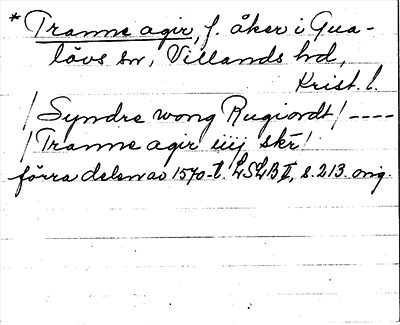 * Tranne agir, f. åker i Gua-
lövs sn, Villands hd,
Krist. l.
/ Syndre wong Rugiordt / ----
/ Tranne agir iiij skr /
förra delen av 1570-t. LSLB II, s. 213. orig.